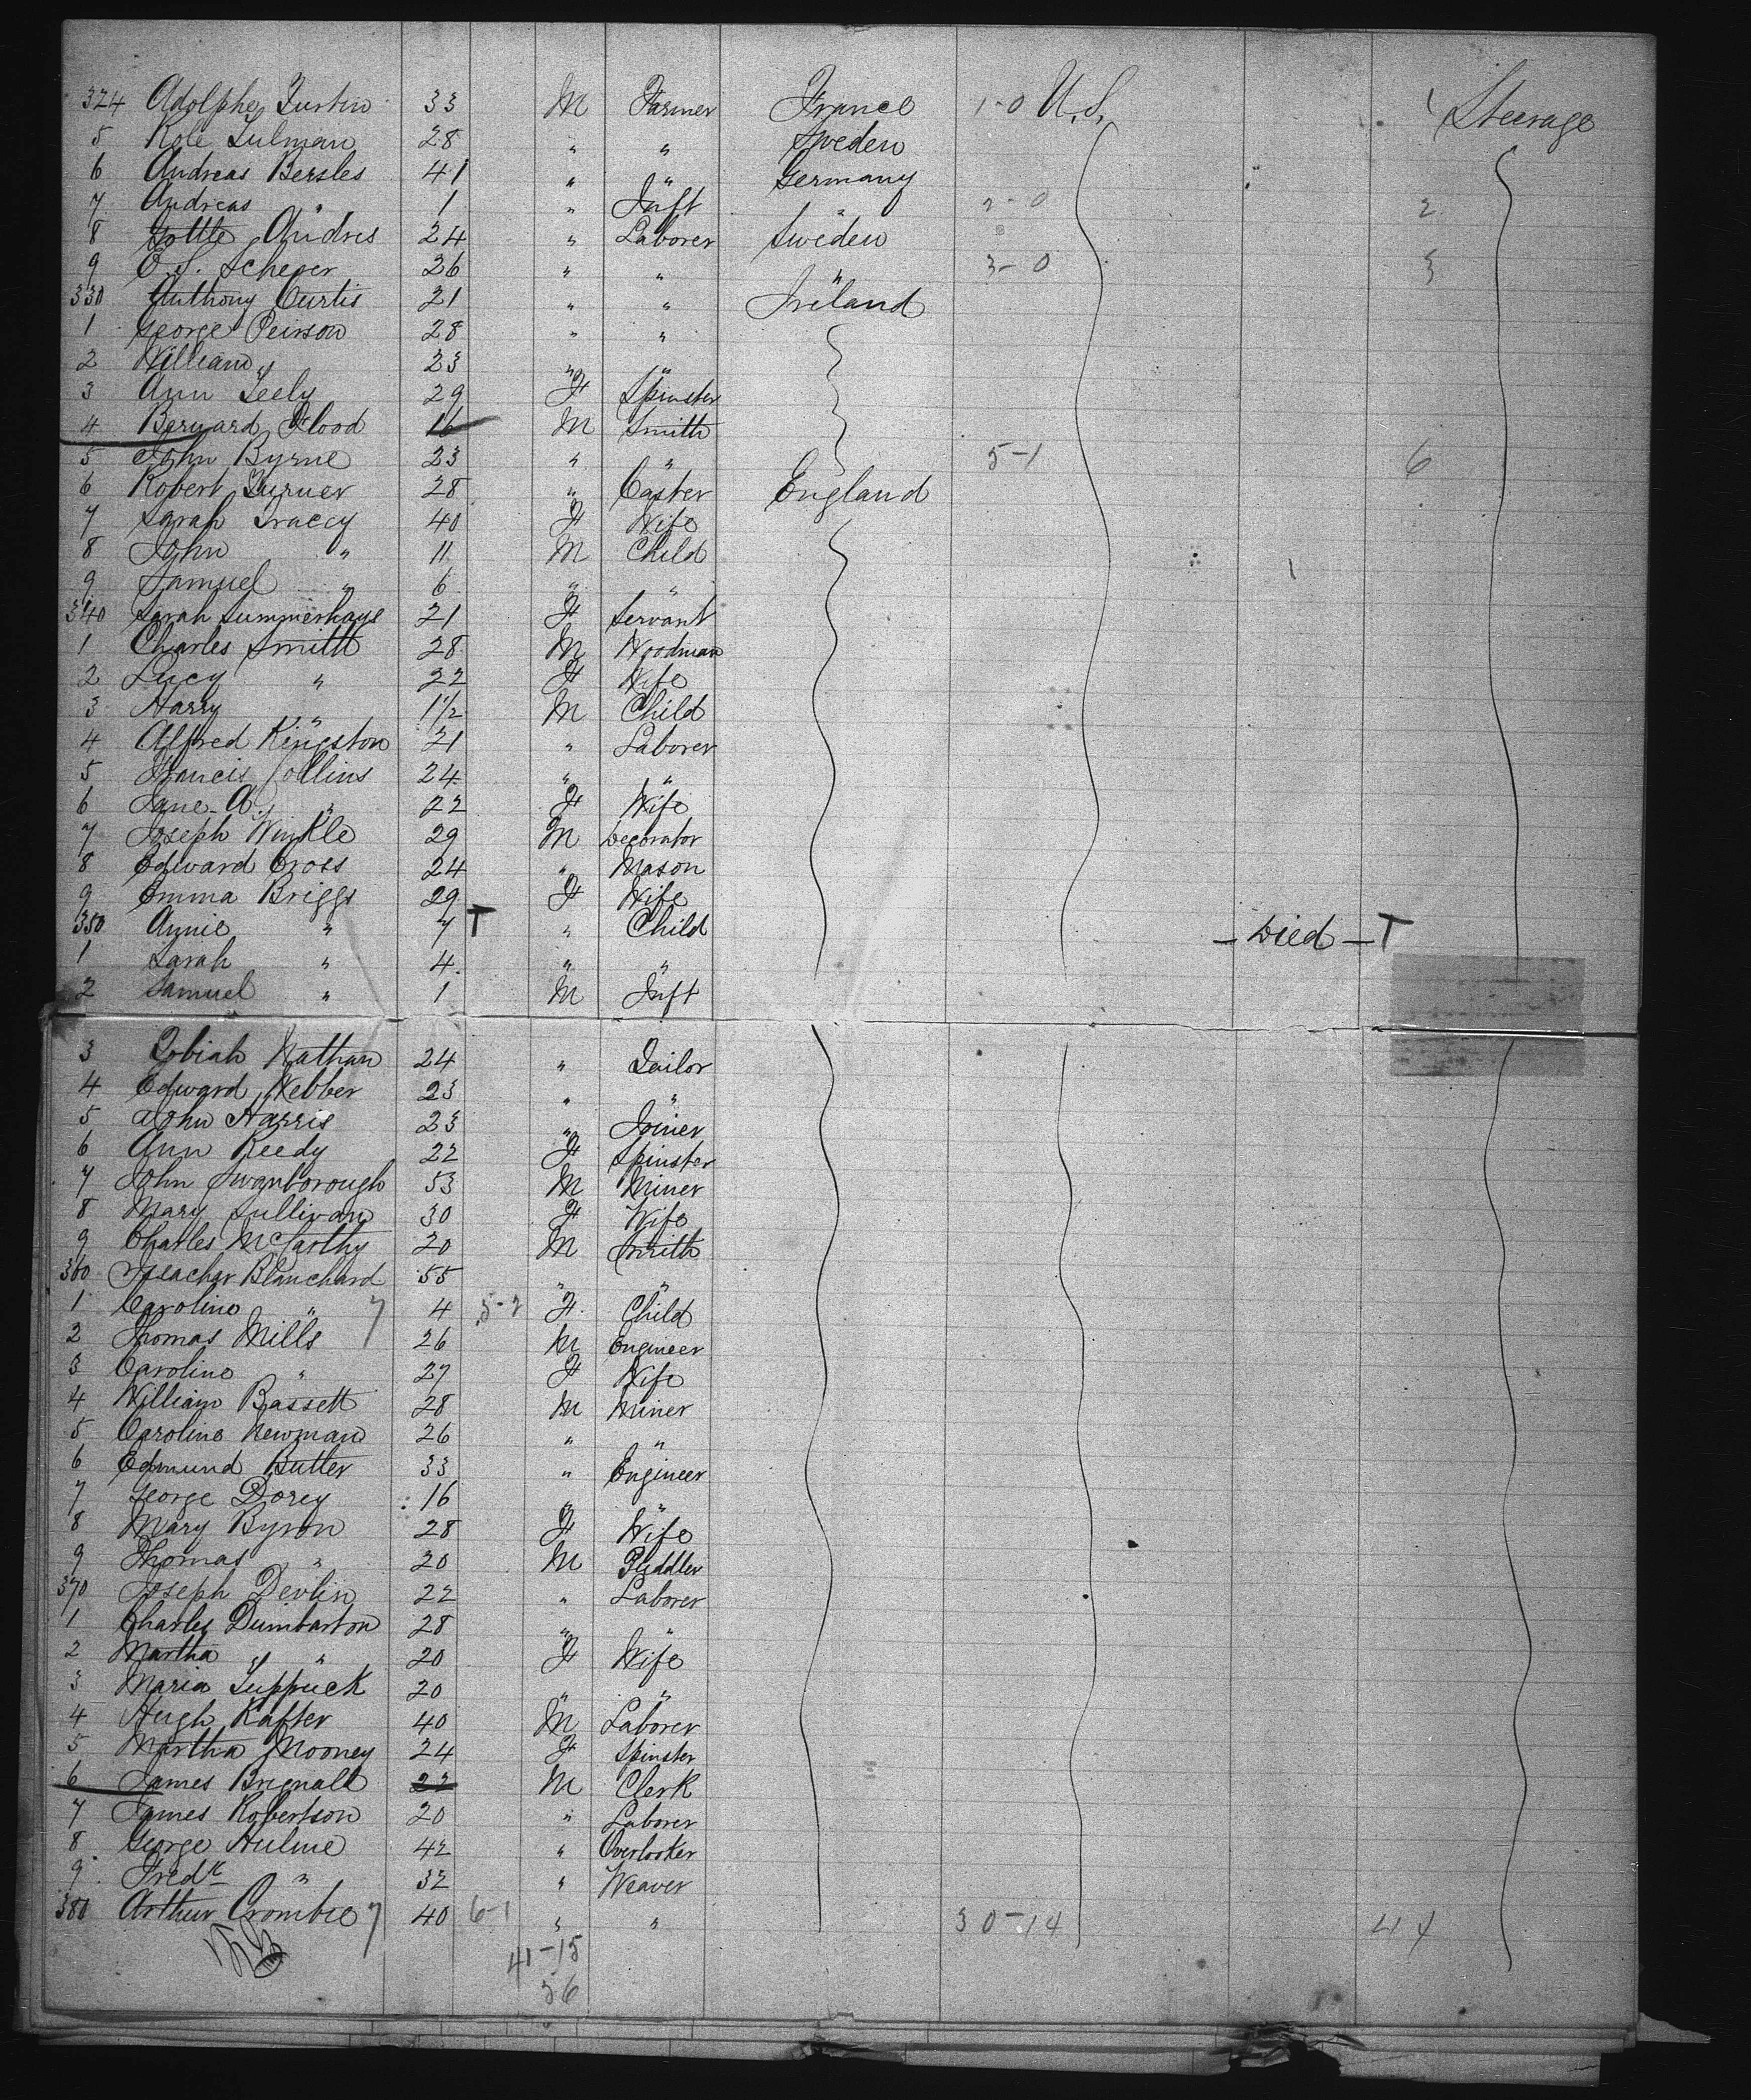 324 Adolphe Justin 33 M Farmer France 1-0 U.S. 1 Steerage
5 Kole Lulman 28 " " Sweden
6 Andreas Bersles 41 " " Germany
7 Andreas " 1 " Inft " 2-0 2
8 Andres 24 " Laborer Sweden
9 O.S. Scheper 26 " " " 3-0 3
330 Anthony Curtis 21 " " Ireland
1 George Peirson 28 " "
2 William " 23 " "
3 Ann Seely 29 F Spinster
4 Bernard Flood 16 M Smith
5 John Byrne 23 " " 5-1 6
6 Robert Turner 28 " Caster England
7 Sarah Tracey 40 F Wife
8 John " 11 M Child
9 Samuel " 6 " "
340 Sarah Summerhays 21 F Servant
1 Charles Smith 28 M Woodman
2 Lucy " 22 F Wife
3 Harry " 1½ M Child
4 Alfred Kingston 21 " Laborer
5 Francis Collins 24 " "
6 Jane A. " 22 F Wife
7 Joseph Winkle 29 M Decorator
8 Edward Cross 24 " Mason
9 Emma Briggs 29 F Wife
350 Annie " 7 T " Child - Died - T
1 Sarah " 4 " "
2 Samuel " 1 M Inft
3 Tobiah Nathan 24 " Tailor
4 Edward Webber 23 " "
5 John Harris 23 " Joiner
6 Ann Reedy 22 F Spinster
7 John Swanborough 53 M Miner
8 Mary Sullivan 30 F Wife
9 Charles McCarthy 20 M Smith
360 Blanchard 55 " "
1 Caroline " 7 4 5-2 F Child
2 Thomas Mills 26 M Engineer
3 Caroline " 27 F Wife
4 William Bassett 28 M Miner
5 Caroline Newman 26 " "
6 Edmund Butler 33 " Engineer
7 George Dorey 16 " "
8 Mary Byron 28 F Wife
9 Thomas " 20 M Puddler
370 Joseph Devlin 22 " Laborer
1 Charles Dumbarton 28 " "
2 Martha " 20 F Wife
3 Maria Suppuck 20 " "
4 Hugh Rafter 40 M Laborer
5 Martha Mooney 24 F Spinster
6 James Brignall 22 M Clerk
7 James Robertson 20 " Laborer
8 George Hulme 42 " Overlooker
9 Fredk " 32 " Weaver
380 Arthur Crombie 7 40 6-1 " " 30-14 44
41-15
56